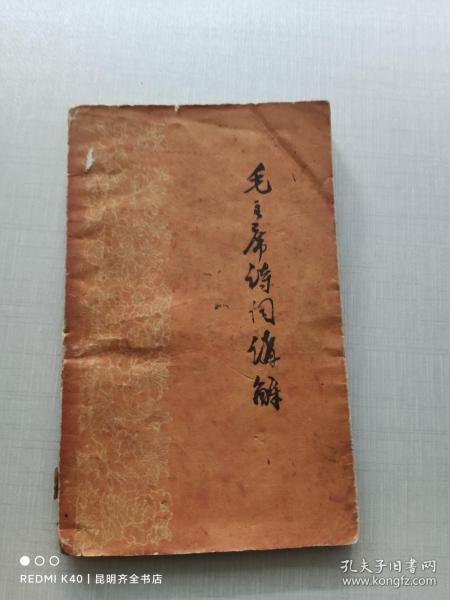 毛主席诗词讲解
REDMI K40 | 昆明齐全书店
孔夫子旧书网
www.kongfz.com